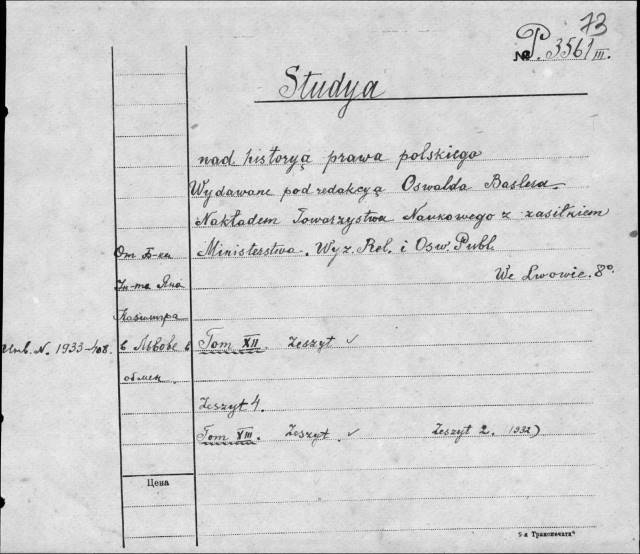 73
№ P. 3561 III.
Studya
nad historyą prawa polskiego
Wydawane pod redakcją Oswalda Baslera
Nakładem Towarzystwa Naukowego z zasiłkiem
От Б-ки Ministerstwa. Wyz. Rel. i Osw. Publ.
Ун-та Яна We Lwowie. 8°
Казимира
Unb. N. 1933-408. в Львове в Tom XII. Zeszyt ✓
обмен.
Zeszyt 4.
Tom XIII. Zeszyt. ✓ Zeszyt 2. (1932)
Цена
9-я Транспечать